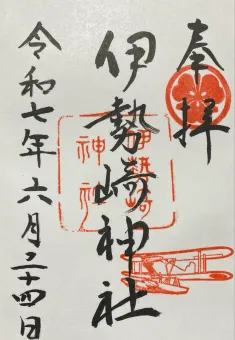 奉拝
伊勢崎神社
伊勢崎神社
令和七年六月二十四日